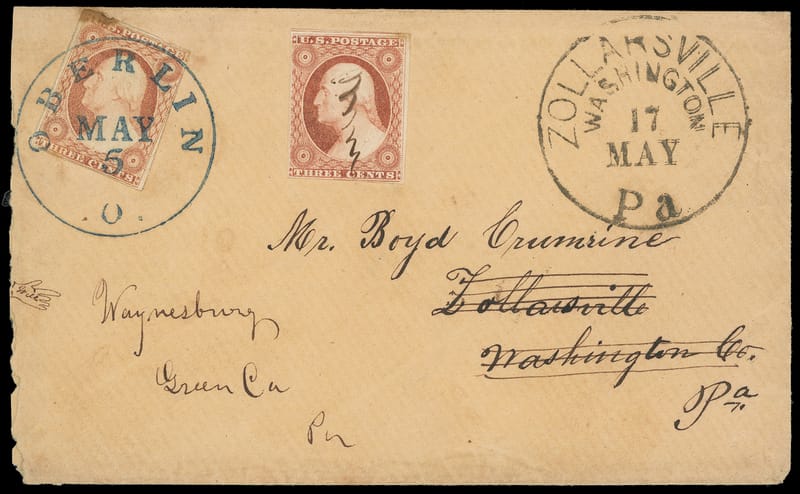 OBERLIN
MAY
5
.O.
THREE CENTS
U.S. POSTAGE
THREE CENTS
ZOLLARSVILLE
WASHINGTON
17
MAY
Pa
Mr. Boyd Crumrine
Zollarsville
Washington Co.
Pa
Waynesburg
Green Co
Pa